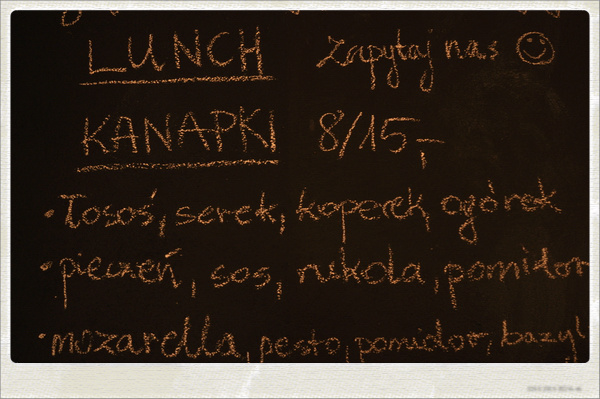 LUNCH Zapytaj nas ☺
KANAPKI 8/15,-
• Łosoś, serek, koperek ogórek
• pieczeń, sos, rukola, pomidor
• mozarella, pesto, pomidor, bazyl